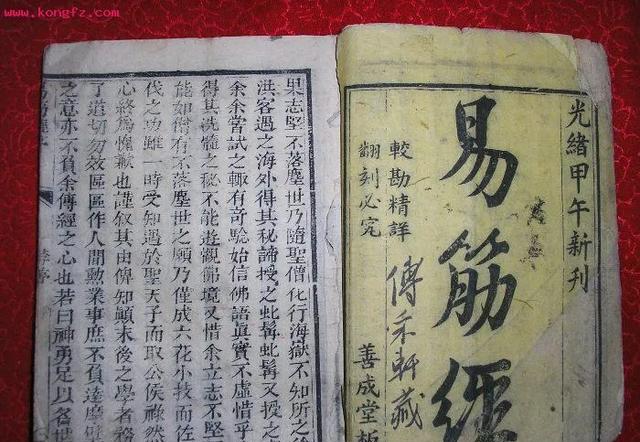 www.kongfz.com
光緒甲午新刊
易筋經
較勘精詳
翻刻必究
善成堂板
果志堅不落塵世乃隨聖僧化行海嶽不知所之
洪客遇之海外得其秘諦授之虬髯虬髯又授之
余余嘗試之輒有奇驗始信佛語眞實不虛惜乎
得其洗髓之秘不能遊觀佛境又惜余立志不堅
能如僧有不落塵世之願乃僅成六花小技而佐
伐之功雖一時受知遇於聖天子而取公侯祿然
心終爲愧歉也謹叙其由俾知顛末後之學者務
了道切勿效區區作人間勲業事庶不負達摩
之意亦不負余傳經之心也若曰神勇足以名世
李序